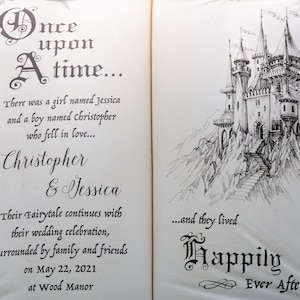 Once
upon
A time...
There was a girl named Jessica
and a boy named Christopher
who fell in love...
Christopher
& Jessica
Their Fairytale continues with
their wedding celebration,
surrounded by family and friends
on May 22, 2021
at Wood Manor
...and they lived
Happily
Ever After